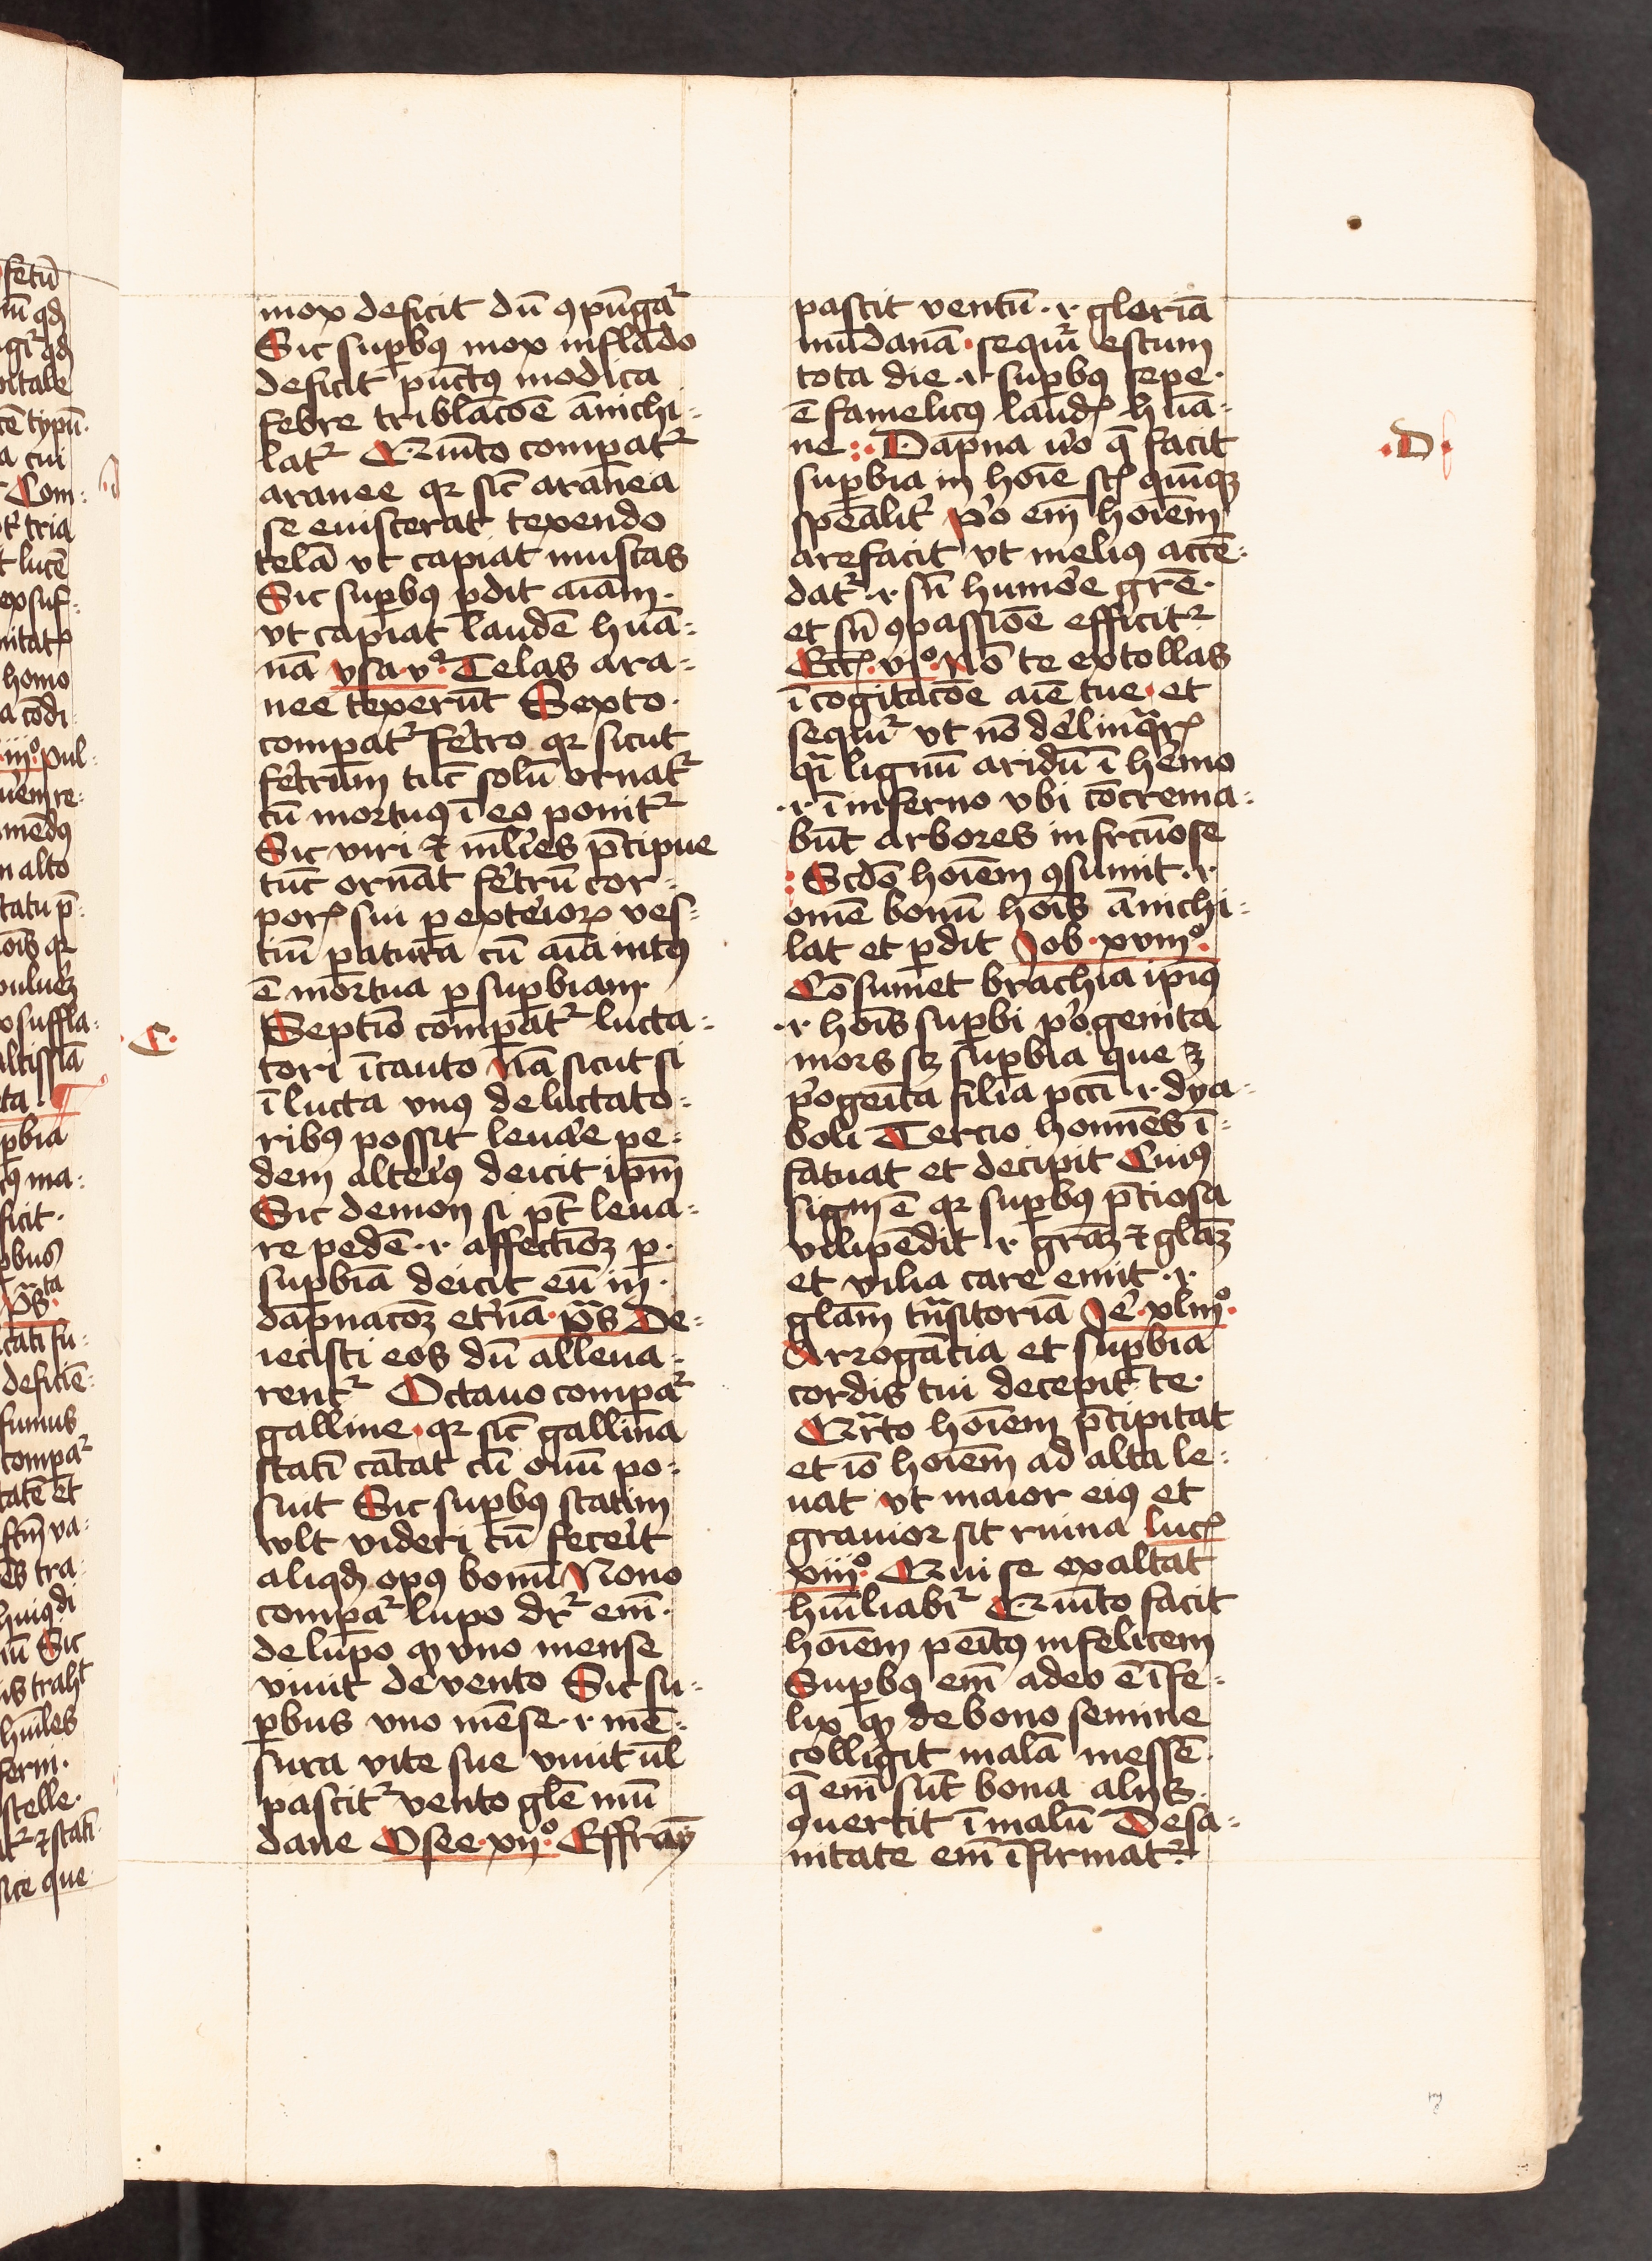 mox deficit dū ꝯpūgaͬ
Sic suꝑbꝰ mox inflādo
deficit pūctꝰ modica
febre tribl̄acōe ānichi=
latᷣ Quīto compatᷣ
aranee qꝛ sic̄ aranea
se euiscerat texendo
telā vt capiat muscas
Sic suꝑbꝰ ꝑdit aīam·
vt capiat laudē huā=
nā ysa·vᵒ· Telas ara=
nee texerūt Sexto·
compatᷣ fet̓ro qꝛ sicut
fet̓rum tūc solū ornatᷣ
cū mortuꝰ ī eo ponitᷣ
Sic viri ⁊ ml̓ies p̄cipue
tūc ornāt fet̓rū cor=
porꝭ sui ꝑ extei̓oꝝ ves=
tiū ꝑaturā cū aīa intꝰ
ē mortua ꝑ suꝑbiam
Septīo compatᷣ lucta=
tori īcauto Nā sicut si
ī lucta vnꝰ de luctato=
ribꝰ possit leua̓e pe=
dem alteiꝰ̓ deicit ip̄m
Sic demon si pt̄ leua=
re pedē ·i· affectiōꝫ ꝑ·
suꝑbiā deicit eū in·
dāpnacōꝫ et̓nā· pᷤs De=
iecisti eos dū alleua=
rentᷣ Octauo compaͬ
galline· qꝛ sic̄ gallina
statī cātat cū ouū po=
suit Sic suꝑbꝰ statim
wlt videri cū fece̓it
aliqđ opꝰ bonū Nono
compaͬ lupo dr̄ eīm·
de lupo ꝙ vno mense
viuit de vento Sic su=
ꝑbus vno mēse ·i· mē=
sura vite sue viuit ul̄
pascitᷣ vento gl̄e mū
dane Osee·xijᵒ· Effraȳ
pascit ventū· ·i· gloriā
mūdanā· sequiͬ estum
tota die ·i· suꝑbꝰ sepe·
ē famelicꝰ laudꝭ huā=
ne :· Dāpna u̓o q̄ facit
suꝑbia in hoīe scꝭ quīqꝫ
spēalit̓ p̓o em̄ hoīem
arefacit vt meliꝰ accē=
datᷣ ·i· sn̄ humoe̓ grē·
et sn̄ ꝯpassiōe efficitᷣ
Eccꝭ·viᵒ· Nō te extollas
ī cogitacōe aīe tue· et
sequiͬ vt nō de̓linqͣrꝭ
qͣi lignū aridū ī he̓mo
·i· ī inferno vbi cōcrema=
būt arbores infrcūose
: Scdo̅ hoīem ꝯsumit ·i·
omē bonū hoīs ānichi=
lat et ꝑdit Job·xviijᵒ·
Cōsumet brachia ipiꝰ
·i· hoīs suꝑbi p̓ogenita
mors sꝫ suꝑbia que ē
p̓ogeīta filia pcc̄i ·i· dya=
boli Tercio homīes ī=
fatuat et decipit Cuiꝰ
sigm ē qꝛ suꝑbꝰ p̄ciosa
vilipēdit ·i· gr̄aꝫ ⁊ gl̄aꝫ
et vilia care emit ·i·
gl̄am trͣsitoriā Je̓·xlixᵒ·
Arrogācia et suꝑbia
cordis tui decepit te·
Qrͣto hoīem p̄cipitat
et iō hoīem ad alta le=
uat vt maior eiꝰ et
grauior sit ruina lucꝭ
xiiijᵒ· Qui se exaltat
hūiliabiͬ Quīto facit
hoīem peītꝰ infelicem
Suꝑbꝰ em̄ adeo ē īfe=
lix ꝙ de bono semine
colligit malā messē·
q̄ em̄ sūt bona alijs·
ꝯuertit ī malū De sa=
nitate em̄ īfirmatᷣ·
·C·
·D·